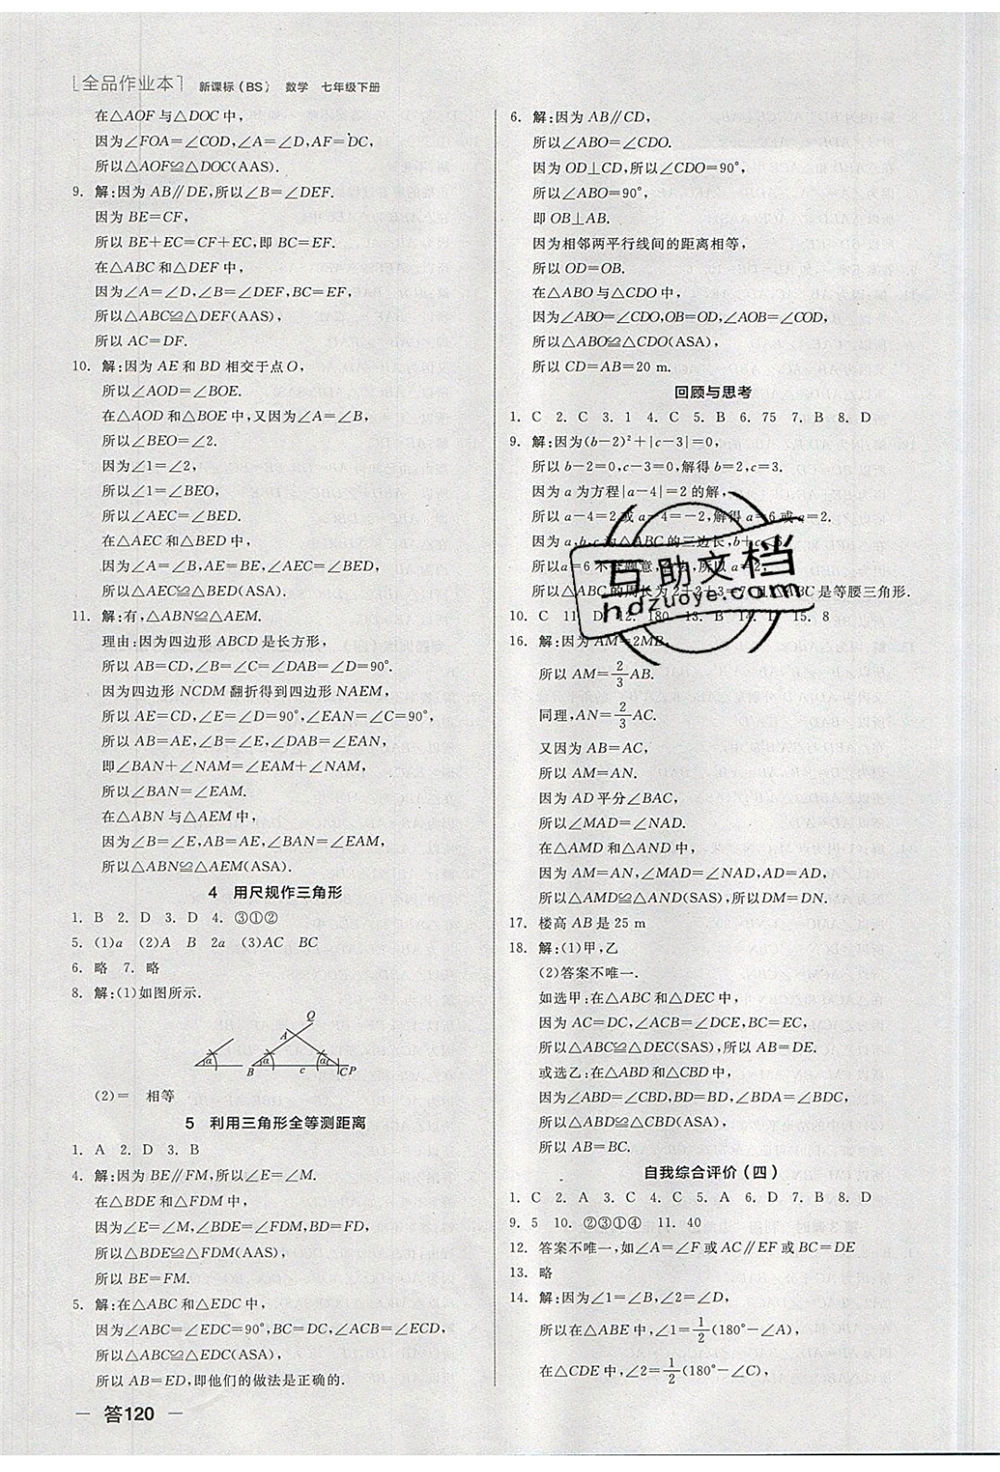 [全品作业本] 新课标(BS) 数学 七年级下册
在△AOF与△DOC中,
因为∠FOA=∠COD,∠A=∠D,AF=DC,
所以△AOF≌△DOC(AAS).
9. 解:因为AB∥DE,所以∠B=∠DEF.
因为BE=CF,
所以BE+EC=CF+EC,即BC=EF.
在△ABC和△DEF中,
因为∠A=∠D,∠B=∠DEF,BC=EF,
所以△ABC≌△DEF(AAS),
所以AC=DF.
10. 解:因为AE和BD相交于点O,
所以∠AOD=∠BOE.
在△AOD和△BOE中,又因为∠A=∠B,
所以∠BEO=∠2.
因为∠1=∠2,
所以∠1=∠BEO,
所以∠AEC=∠BED.
在△AEC和△BED中,
因为∠A=∠B,AE=BE,∠AEC=∠BED,
所以△AEC≌△BED(ASA).
11. 解:有,△ABN≌△AEM.
理由:因为四边形ABCD是长方形,
所以AB=CD,∠B=∠C=∠DAB=∠D=90°.
因为四边形NCDM翻折得到四边形NAEM,
所以AE=CD,∠E=∠D=90°,∠EAN=∠C=90°,
所以AB=AE,∠B=∠E,∠DAB=∠EAN,
即∠BAN+∠NAM=∠EAM+∠NAM,
所以∠BAN=∠EAM.
在△ABN与△AEM中,
因为∠B=∠E,AB=AE,∠BAN=∠EAM,
所以△ABN≌△AEM(ASA).
4 用尺规作三角形
1. B 2. D 3. D 4. ③①②
5. (1)a (2)A B 2a (3)AC BC
6. 略 7. 略
8. 解:(1)如图所示.
Q
A
α α α
B c C P
(2)= 相等
5 利用三角形全等测距离
1. A 2. D 3. B
4. 解:因为BE∥FM,所以∠E=∠M.
在△BDE和△FDM中,
因为∠E=∠M,∠BDE=∠FDM,BD=FD,
所以△BDE≌△FDM(AAS),
所以BE=FM.
5. 解:在△ABC和△EDC中,
因为∠ABC=∠EDC=90°,BC=DC,∠ACB=∠ECD,
所以△ABC≌△EDC(ASA),
所以AB=ED,即他们的做法是正确的.
— 答120 —
6. 解:因为AB∥CD,
所以∠ABO=∠CDO.
因为OD⊥CD,所以∠CDO=90°,
所以∠ABO=90°,
即OB⊥AB.
因为相邻两平行线间的距离相等,
所以OD=OB.
在△ABO与△CDO中,
因为∠ABO=∠CDO,OB=OD,∠AOB=∠COD,
所以△ABO≌△CDO(ASA),
所以CD=AB=20 m.
回顾与思考
1. C 2. C 3. 1 4. C 5. B 6. 75 7. B 8. D
9. 解:因为(b-2)²+|c-3|=0,
所以b-2=0,c-3=0,解得b=2,c=3.
因为a为方程|a-4|=2的解,
所以a-4=2或a-4=-2,解得a=6或a=2.
因为a,b,c为△ABC的三边长,b+c<6,
所以a=6不合题意,舍去,所以a=2,
所以△ABC的周长为2+2+3=7,且△ABC是等腰三角形.
10. C 11. D 12. 180 13. B 14. D 15. 8
16. 解:因为AM=2MB,
所以AM=2/3AB.
同理,AN=2/3AC.
又因为AB=AC,
所以AM=AN.
因为AD平分∠BAC,
所以∠MAD=∠NAD.
在△AMD和△AND中,
因为AM=AN,∠MAD=∠NAD,AD=AD,
所以△AMD≌△AND(SAS),所以DM=DN.
17. 楼高AB是25 m
18. 解:(1)甲,乙
(2)答案不唯一.
如选甲:在△ABC和△DEC中,
因为AC=DC,∠ACB=∠DCE,BC=EC,
所以△ABC≌△DEC(SAS),所以AB=DE.
或选乙:在△ABD和△CBD中,
因为∠ABD=∠CBD,BD=BD,∠BDA=∠BDC,
所以△ABD≌△CBD(ASA),
所以AB=BC.
自我综合评价(四)
1. C 2. A 3. C 4. C 5. A 6. D 7. B 8. D
9. 5 10. ②③①④ 11. 40
12. 答案不唯一,如∠A=∠F或AC∥EF或BC=DE
13. 略
14. 解:因为∠1=∠B,∠2=∠D,
所以在△ABE中,∠1=1/2(180°-∠A),
在△CDE中,∠2=1/2(180°-∠C),
互助文档
hdzuoye.com